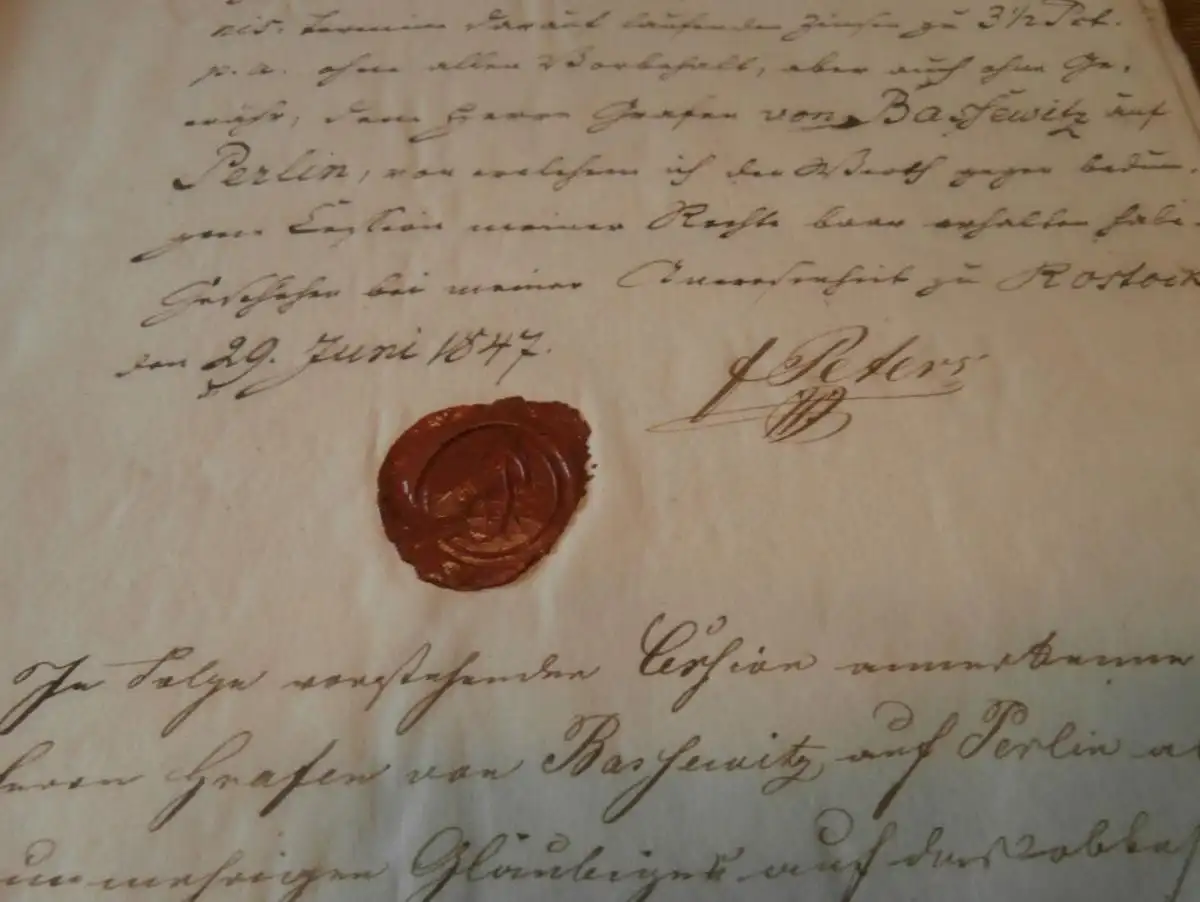 nis. Termin darauf laufenden Zinsen zu 3½ Pct.
p. a. ohne allen Vorbehalt, aber auch ohne Ge-
währ, dem Herrn Grafen von Bassewitz auf
Perlin, von welchem ich den Werth gegen bedun-
gene Cession meiner Rechte baar erhalten habe
Geschehen bei meiner Anwesenheit zu Rostock
den 29. Juni 1847.
f Peters
In Folge vorstehender Cession anerkenne
Herrn Grafen von Bassewitz auf Perlin a
nunmehrigen Gläubiger auf das